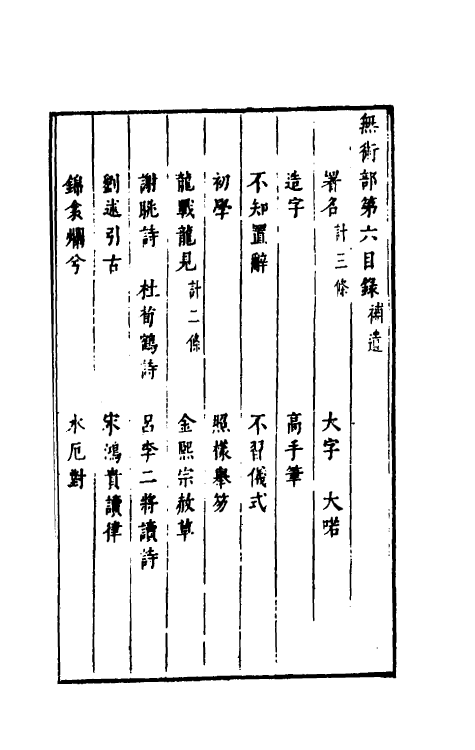 無術部第六目錄補遺
署名計三條 大字 大喏
造字 高手筆
不知置辭 不習儀式
初學 照樣舉笏
龍戰龍見計二條 金熙宗赦草
謝朓詩 杜荀鶴詩 呂李二將讀詩
劉述引古 宋鴻貴讀律
錦衾爛兮 水厄對